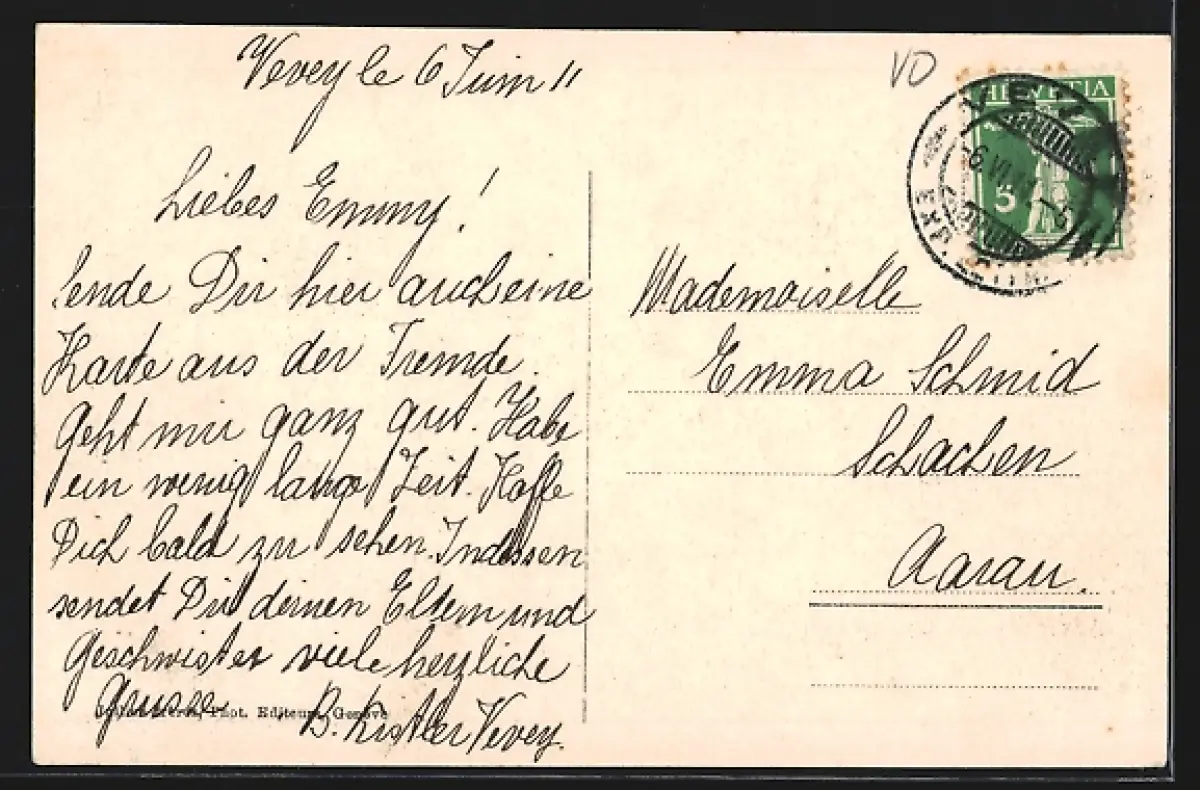 Vevey le 6 Juin 11
Liebes Emmy!
Sende Dir hier auch eine
Karte aus der Fremde.
Geht mir ganz gut. Habe
ein wenig lange Zeit. Hoffe
Dich bald zu sehen. Indessen
sendet Dir deinen Eltern und
Geschwister viele herzliche
Grüsse B. Kistler Vevey.
Frères, Phot. Editeurs, Genève
VD
HELVETIA
5
VEVEY
6.VI.11.-5
EXP. LETTR.
Mademoiselle
Emma Schmid
Schachen
Aarau.